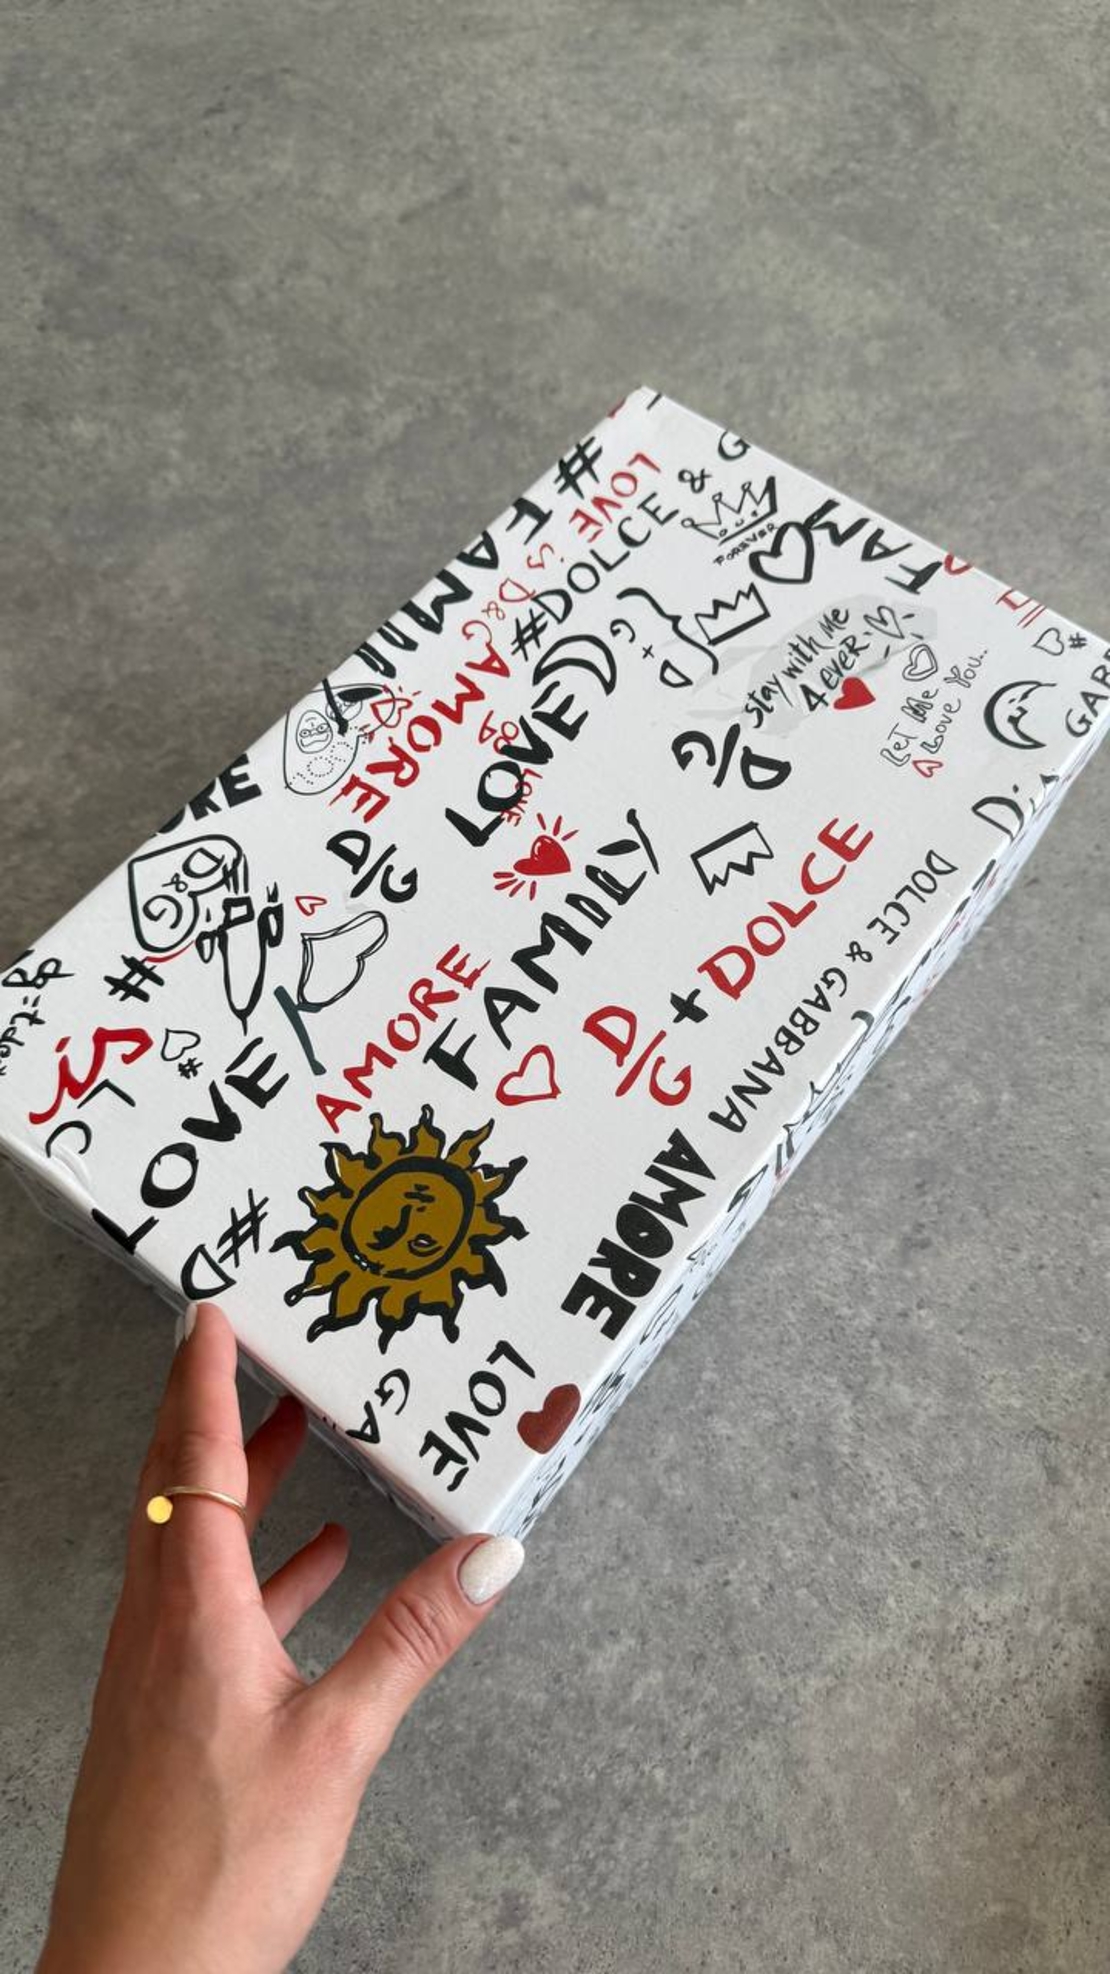 #
LOVE
is D&G
#DOLCE & G
LOVE
FOREVER
FAMILY
AMORE
LOVE
LOVE
D+G
stay with me
4 ever
Let Me
Love You..
GABB
D/G
D/G
D&G
FAMILY
AMORE
D/G + DOLCE
DOLCE & GABBANA
AMORE
#
LOVE
#D
GA
LOVE